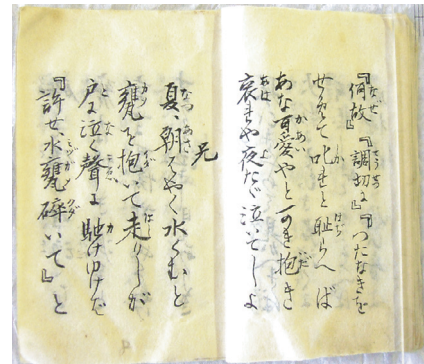 『何故』『つたなきを
せめて叱れと恥らへば
あな可愛やとかき抱き
哀れや夜たゞ泣いてしよ
兄
夏、朝はやく水くむと
甕を抱いて走りしが
戸に泣く聲に馳けゆけば
『許せ、水甕碎いて』と